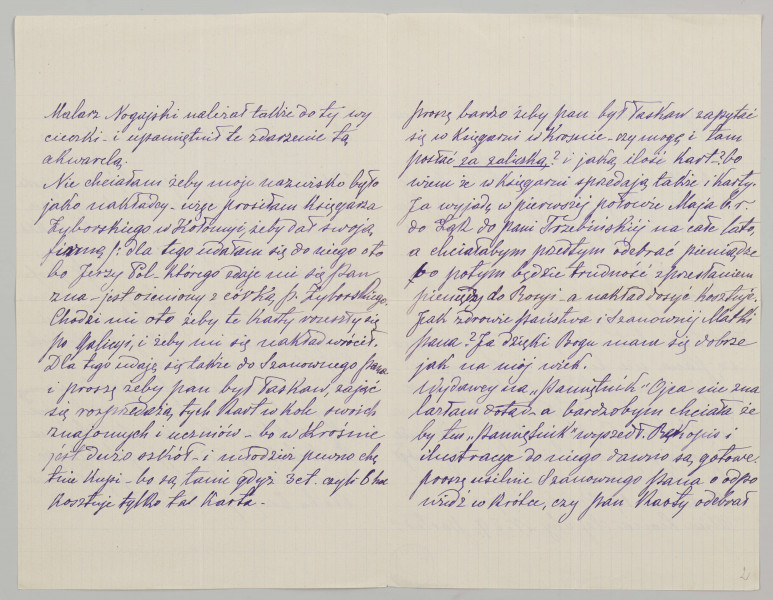 Malarz Nogajski należał także do tej wy
cieczki - i upamiętnił te zdarzenie tą
akwarelą.
Nie chciałam żeby moje nazwisko było
jako nakładcy - więc prosiłam Księgarza
Zyborskiego w Kołomyi, żeby dał swoją
firmą /: dla tego udałam się do niego oto
bo Jerzy Pol - którego zdaje mi się Pan
zna - jest ożeniony z córką p. Zyborskiego.
Chodzi mi oto żeby te Karty rozeszły się
po Galicyi, i żeby mi się nakład wrócił.
Dla tego udaję się także do Szanownego Pana
i proszę żeby pan był łaskaw, zająć
się rozprzedażą, tych Kart w kole swoich
znajomych i uczniów - bo w Krośnie
jest dużo szkół - i młodzież pewno chę
tnie Kupi - bo są tanie gdyż 3 ct. czyli 6 hal
Kosztuje tylko ta Karta -
proszę bardzo żeby pan był łaskaw zapytać
się w Księgarni w Krośnie - czy mogę i tam
posłać za zaliczką? i jaką ilość kart? bo
wiem że w Księgarni sprzedają także i Karty.
Ja wyjadę w pierwszej połowie Maja b. r.
do Łąk do pani Trzebińskiej na całe lato,
a chciałabym przedtym odebrać pieniądze
bo potym będzie trudność z przesłaniem
pieniędzy do Rosyi - a nakład dosyć kosztuje.
Jak zdrowie Państwa i Szanownej Matki
pana? Ja dzięki Bogu mam się dobrze
jak na mój wiek.
Wydawcy na „Pamiętnik" Ojca nie zna
lazłam dotąd - a bardzobym chciała że
by ten „Pamiętnik" wyszedł. Rękopis i
ilustracje do niego dawno są gotowe.
proszę usilnie Szanownego Pana o odpo
wiedź w krótce, czy pan Karty odebrał